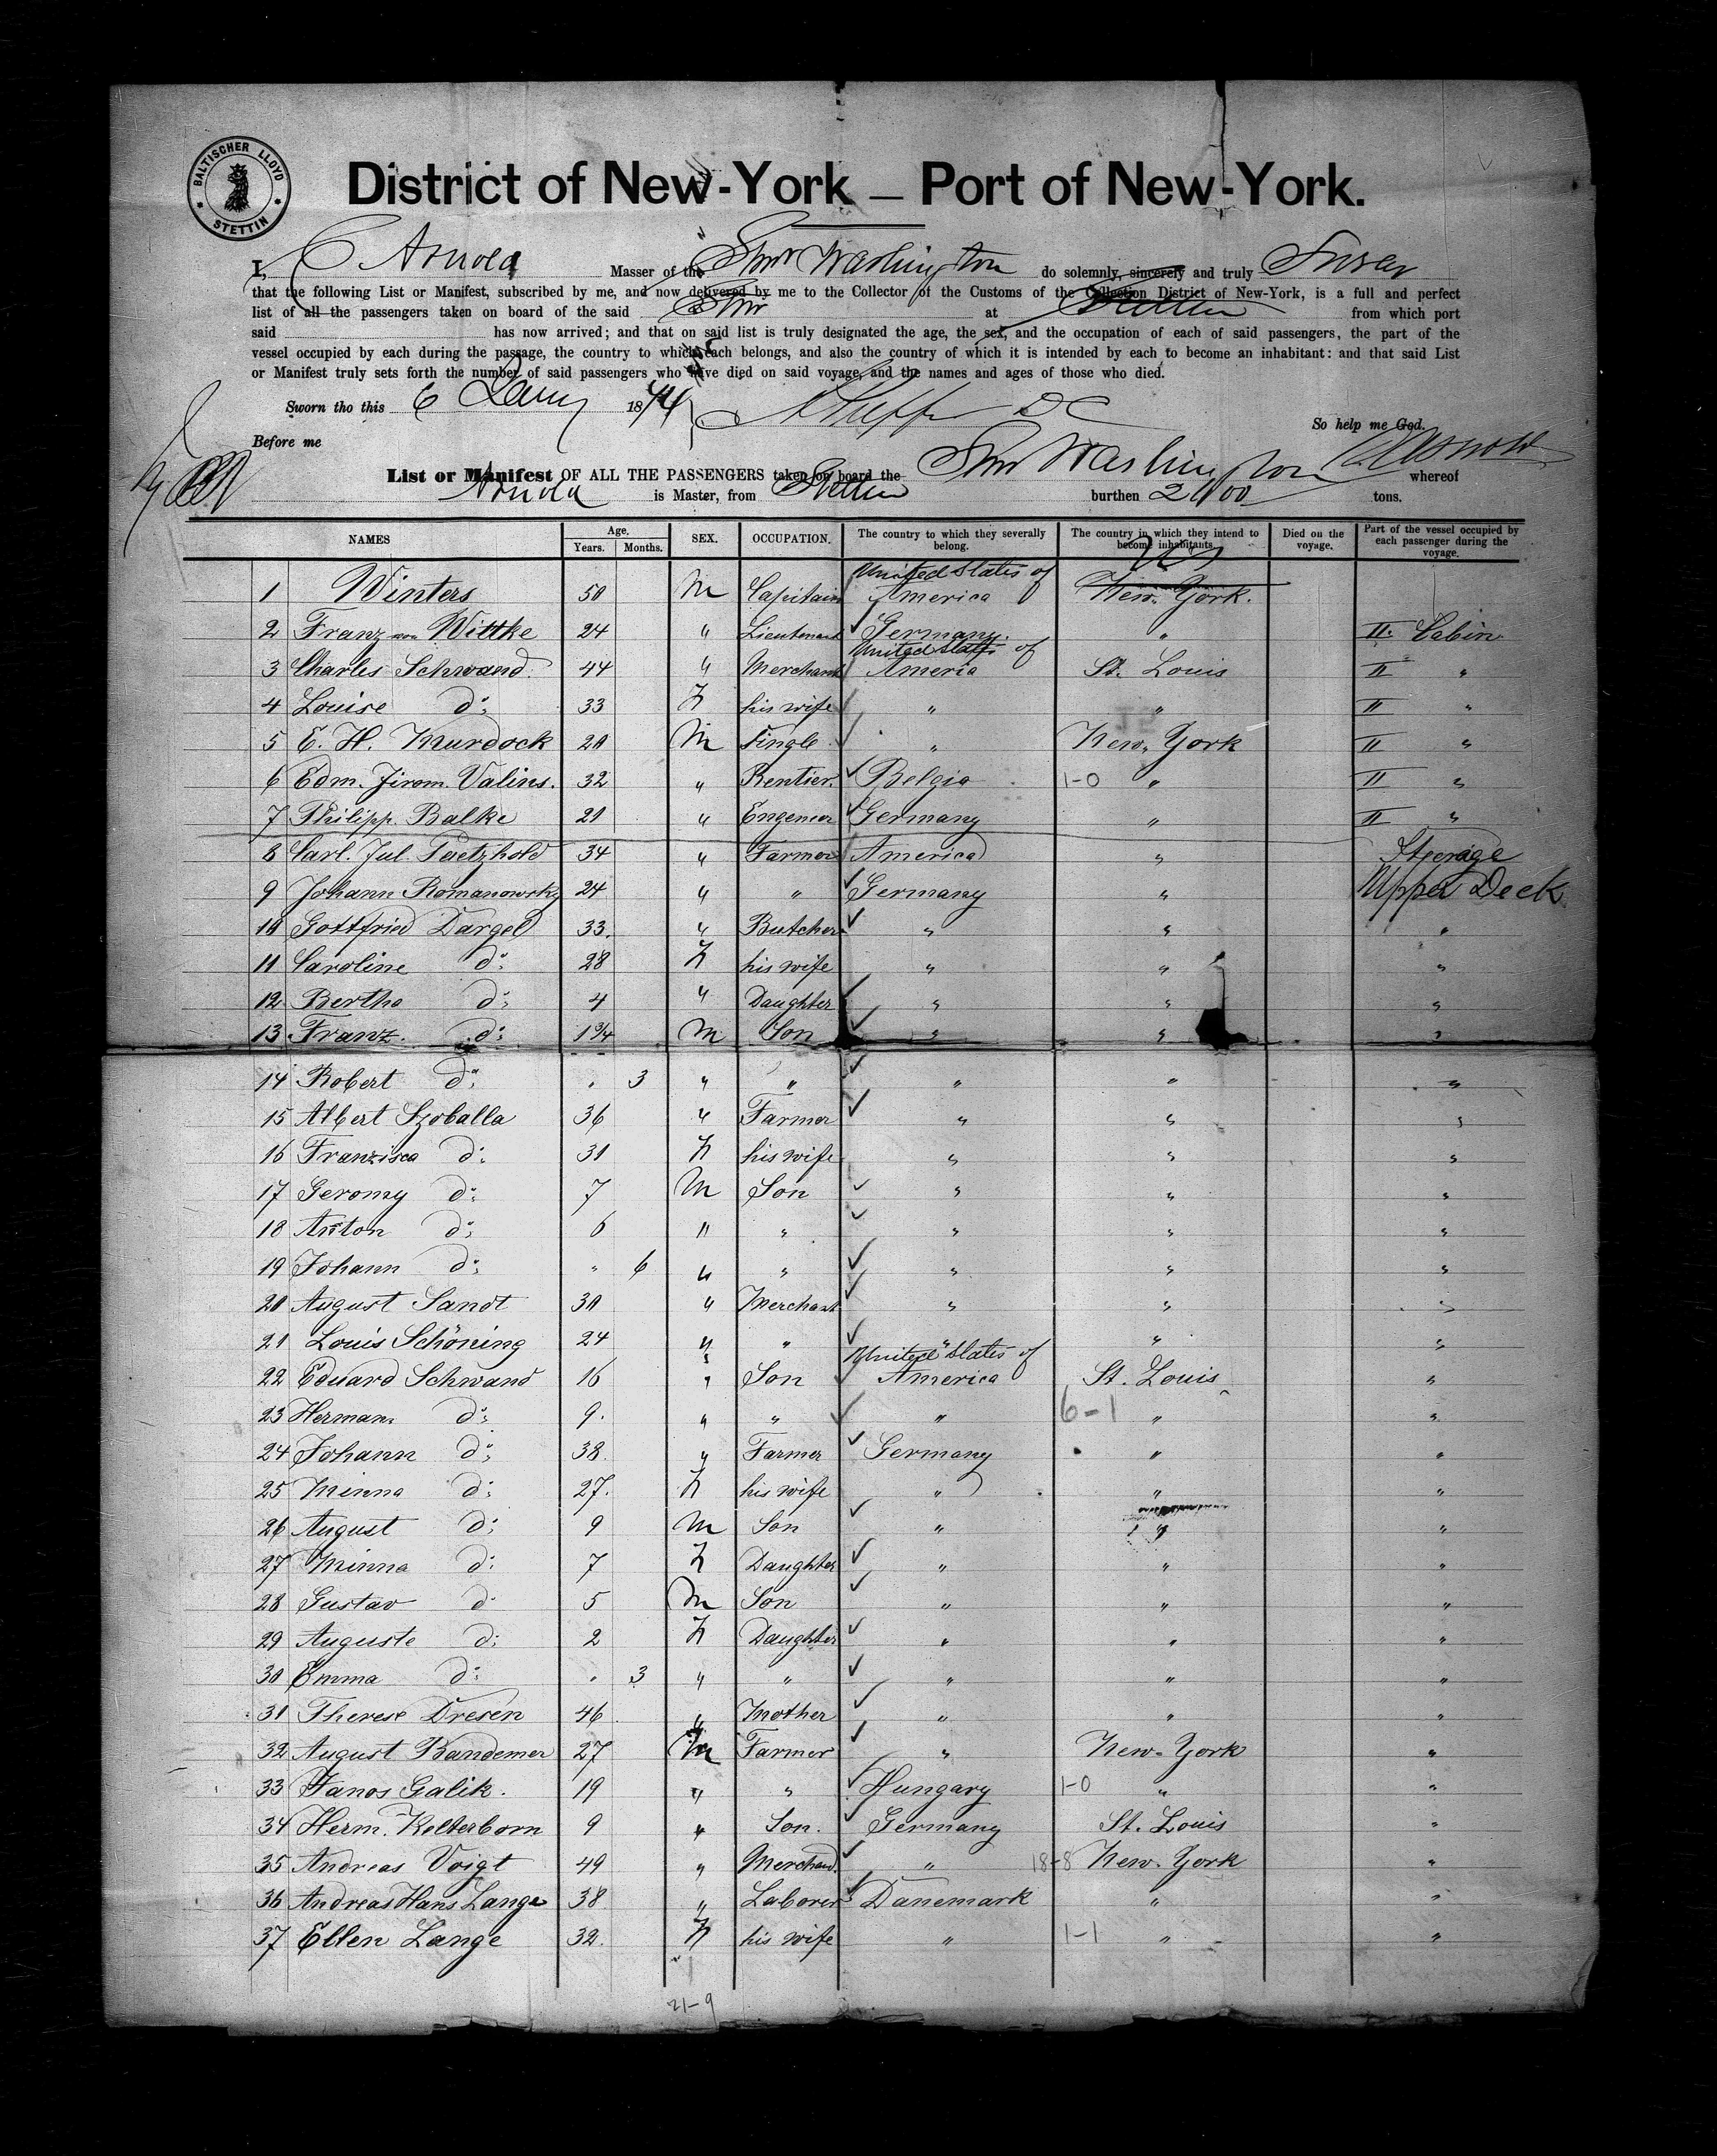 BALTISCHER LLOYD
STETTIN
District of New-York — Port of New-York.
I, C Arnold Masser of the Stmr Washington do solemnly, sincerely and truly Swear
that the following List or Manifest, subscribed by me, and now delivered by me to the Collector of the Customs of the Collection District of New-York, is a full and perfect
list of all the passengers taken on board of the said Stmr at Stettin from which port
said has now arrived; and that on said list is truly designated the age, the sex, and the occupation of each of said passengers, the part of the
vessel occupied by each during the passage, the country to which each belongs, and also the country of which it is intended by each to become an inhabitant: and that said List
or Manifest truly sets forth the number of said passengers who have died on said voyage, and the names and ages of those who died.
Sworn tho this 6 1874 DC So help me God.
Before me C Arnold
List or Manifest OF ALL THE PASSENGERS taken on board the Stmr Washington whereof
Arnold is Master, from Stettin burthen 2400 tons.
NAMES Age. Years. Months. SEX. OCCUPATION. The country to which they severally belong. The country in which they intend to become inhabitants. Died on the voyage. Part of the vessel occupied by each passenger during the voyage.
1 Winters 50 M Capitain United States of America New-York.
2 Franz von Wittke 24 " Lieutenant Germany. " II. Cabin
3 Charles Schwand. 44 " Merchant United States of Ameria St. Louis II "
4 Louise do: 33 F his wife " " II "
5 E. H. Murdock 20 M Single " New-York II "
6 Edm. Jirom. Valins. 32 " Rentier. Belgia 1-0 " II "
7 Philipp. Balke 21 " Engeneer Germany " II "
8 Carl. Jul. Paetzhold 34 " Farmer America " Steerage
9 Johann Romanowsky 24 " " Germany " Upper Deck
10 Gottfried Dargel 33. " Butcher " " "
11 Caroline do: 28 F his wife " " "
12 Bertha do: 4 " Daughter " " "
13 Franz. do: 1 3/4 M Son " " "
14 Robert do: " 3 " " " " "
15 Albert Szoballa 36 " Farmer " " "
16 Franzisca do: 31 F his wife " " "
17 Geromy do: 7 M Son " " "
18 Anton do: 6 " " " " "
19 Johann do: " 6 " " " " "
20 August Sandt 30 " Merchant " " "
21 Louis Schöning 24 " " " " "
22 Eduard Schwand 16 " Son United States of America St. Louis "
23 Herman do: 9. " " " 6-1 " "
24 Johann do: 38. " Farmer Germany " "
25 Minna do: 27. F his wife " " "
26 August do: 9 M Son " " "
27 Minna do: 7 F Daughter " " "
28 Gustav do: 5 M Son " " "
29 Auguste do: 2 F Daughter " " "
30 Emma do: " 3 " " " " "
31 Therese Dresen 46 " Mother " " "
32 August Bandemer 27 M Farmer " New-York "
33 Janos Galik. 19 " " Hungary 1-0 " "
34 Herm. Kelterborn 9 " Son. Germany St. Louis "
35 Andreas Voigt 49 " Merchand. " 18-8 New-York "
36 Andreas Hans Lange 38 " Laborer Danemark " "
37 Ellen Lange 32. F his wife " 1-1 " "
21-9